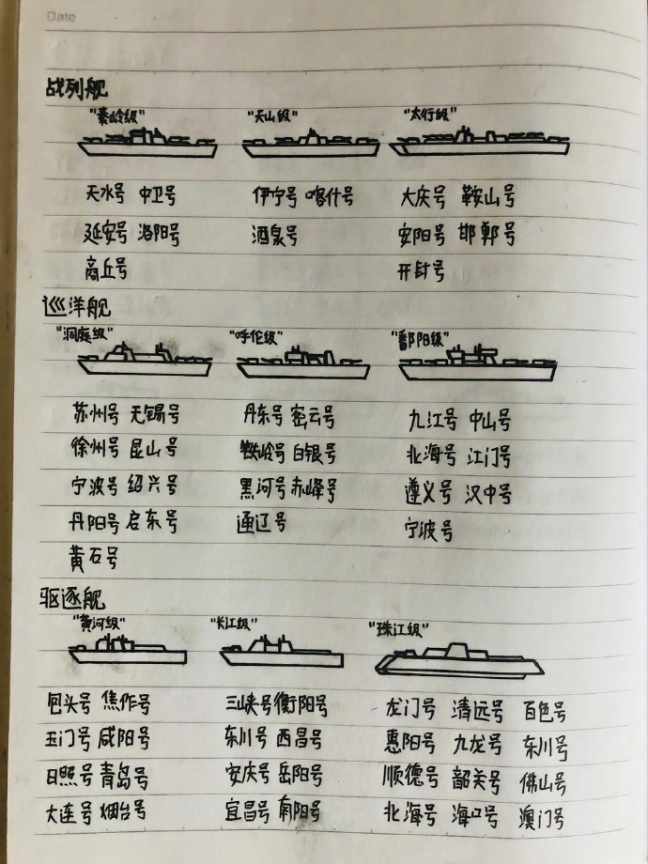 Date
战列舰
"秦岭级" "天山级" "太行级"
天水号 中卫号 伊宁号 喀什号 大庆号 鞍山号
延安号 洛阳号 酒泉号 安阳号 邯郸号
商丘号 开封号
巡洋舰
"洞庭级" "呼伦级" "鄱阳级"
苏州号 无锡号 丹东号 密云号 九江号 中山号
徐州号 昆山号 铁岭号 白银号 北海号 江门号
宁波号 绍兴号 黑河号 赤峰号 遵义号 汉中号
丹阳号 启东号 通辽号 宁波号
黄石号
驱逐舰
"黄河级" "长江级" "珠江级"
包头号 焦作号 三峡号 衡阳号 龙门号 清远号 百色号
玉门号 咸阳号 东川号 西昌号 惠阳号 九龙号 东川号
日照号 青岛号 安庆号 岳阳号 顺德号 韶关号 佛山号
大连号 烟台号 宜昌号 南阳号 北海号 海口号 澳门号